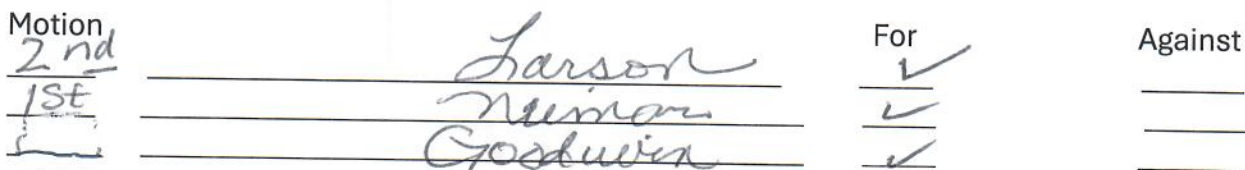 Motion For Against
2nd Larson ✓
1st Neiman ✓
Goodwin ✓